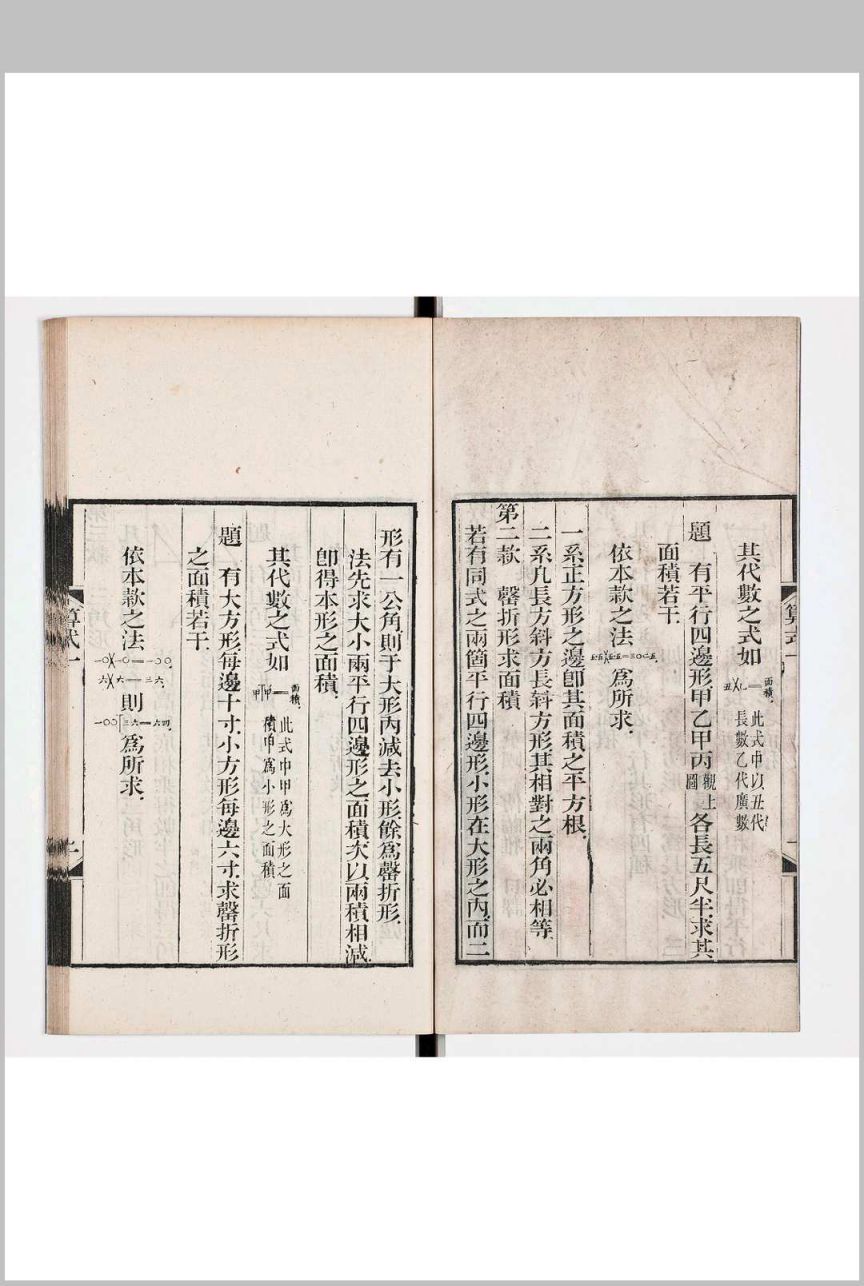 其代數之式如
面積
此式中以丑代
長數乙代廣數
題　有平行四邊形甲乙甲丙
觀上
圖
各長五尺半求其
面積若干
依本款之法
五·五╳五·五＝三〇·二五
爲所求
一系正方形之邊卽其面積之平方根
二系凡長方斜方長斜方形其相對之兩角必相等
第二款　罄折形求面積
若有同式之兩箇平行四邊形小形在大形之內而二
形有一公角則于大形內減去小形餘爲罄折形
法先求大小兩平行四邊形之面積次以兩積相減
卽得本形之面積
其代數之式如
面積
此式中甲爲大形之面
積 爲小形之面積
題　有大方形每邊十寸小方形每邊六寸求罄折形
之面積若干
依本款之法
一〇╳一〇＝一〇〇
六╳六＝三六
則
一〇〇 三六＝六四
爲所求
算式一